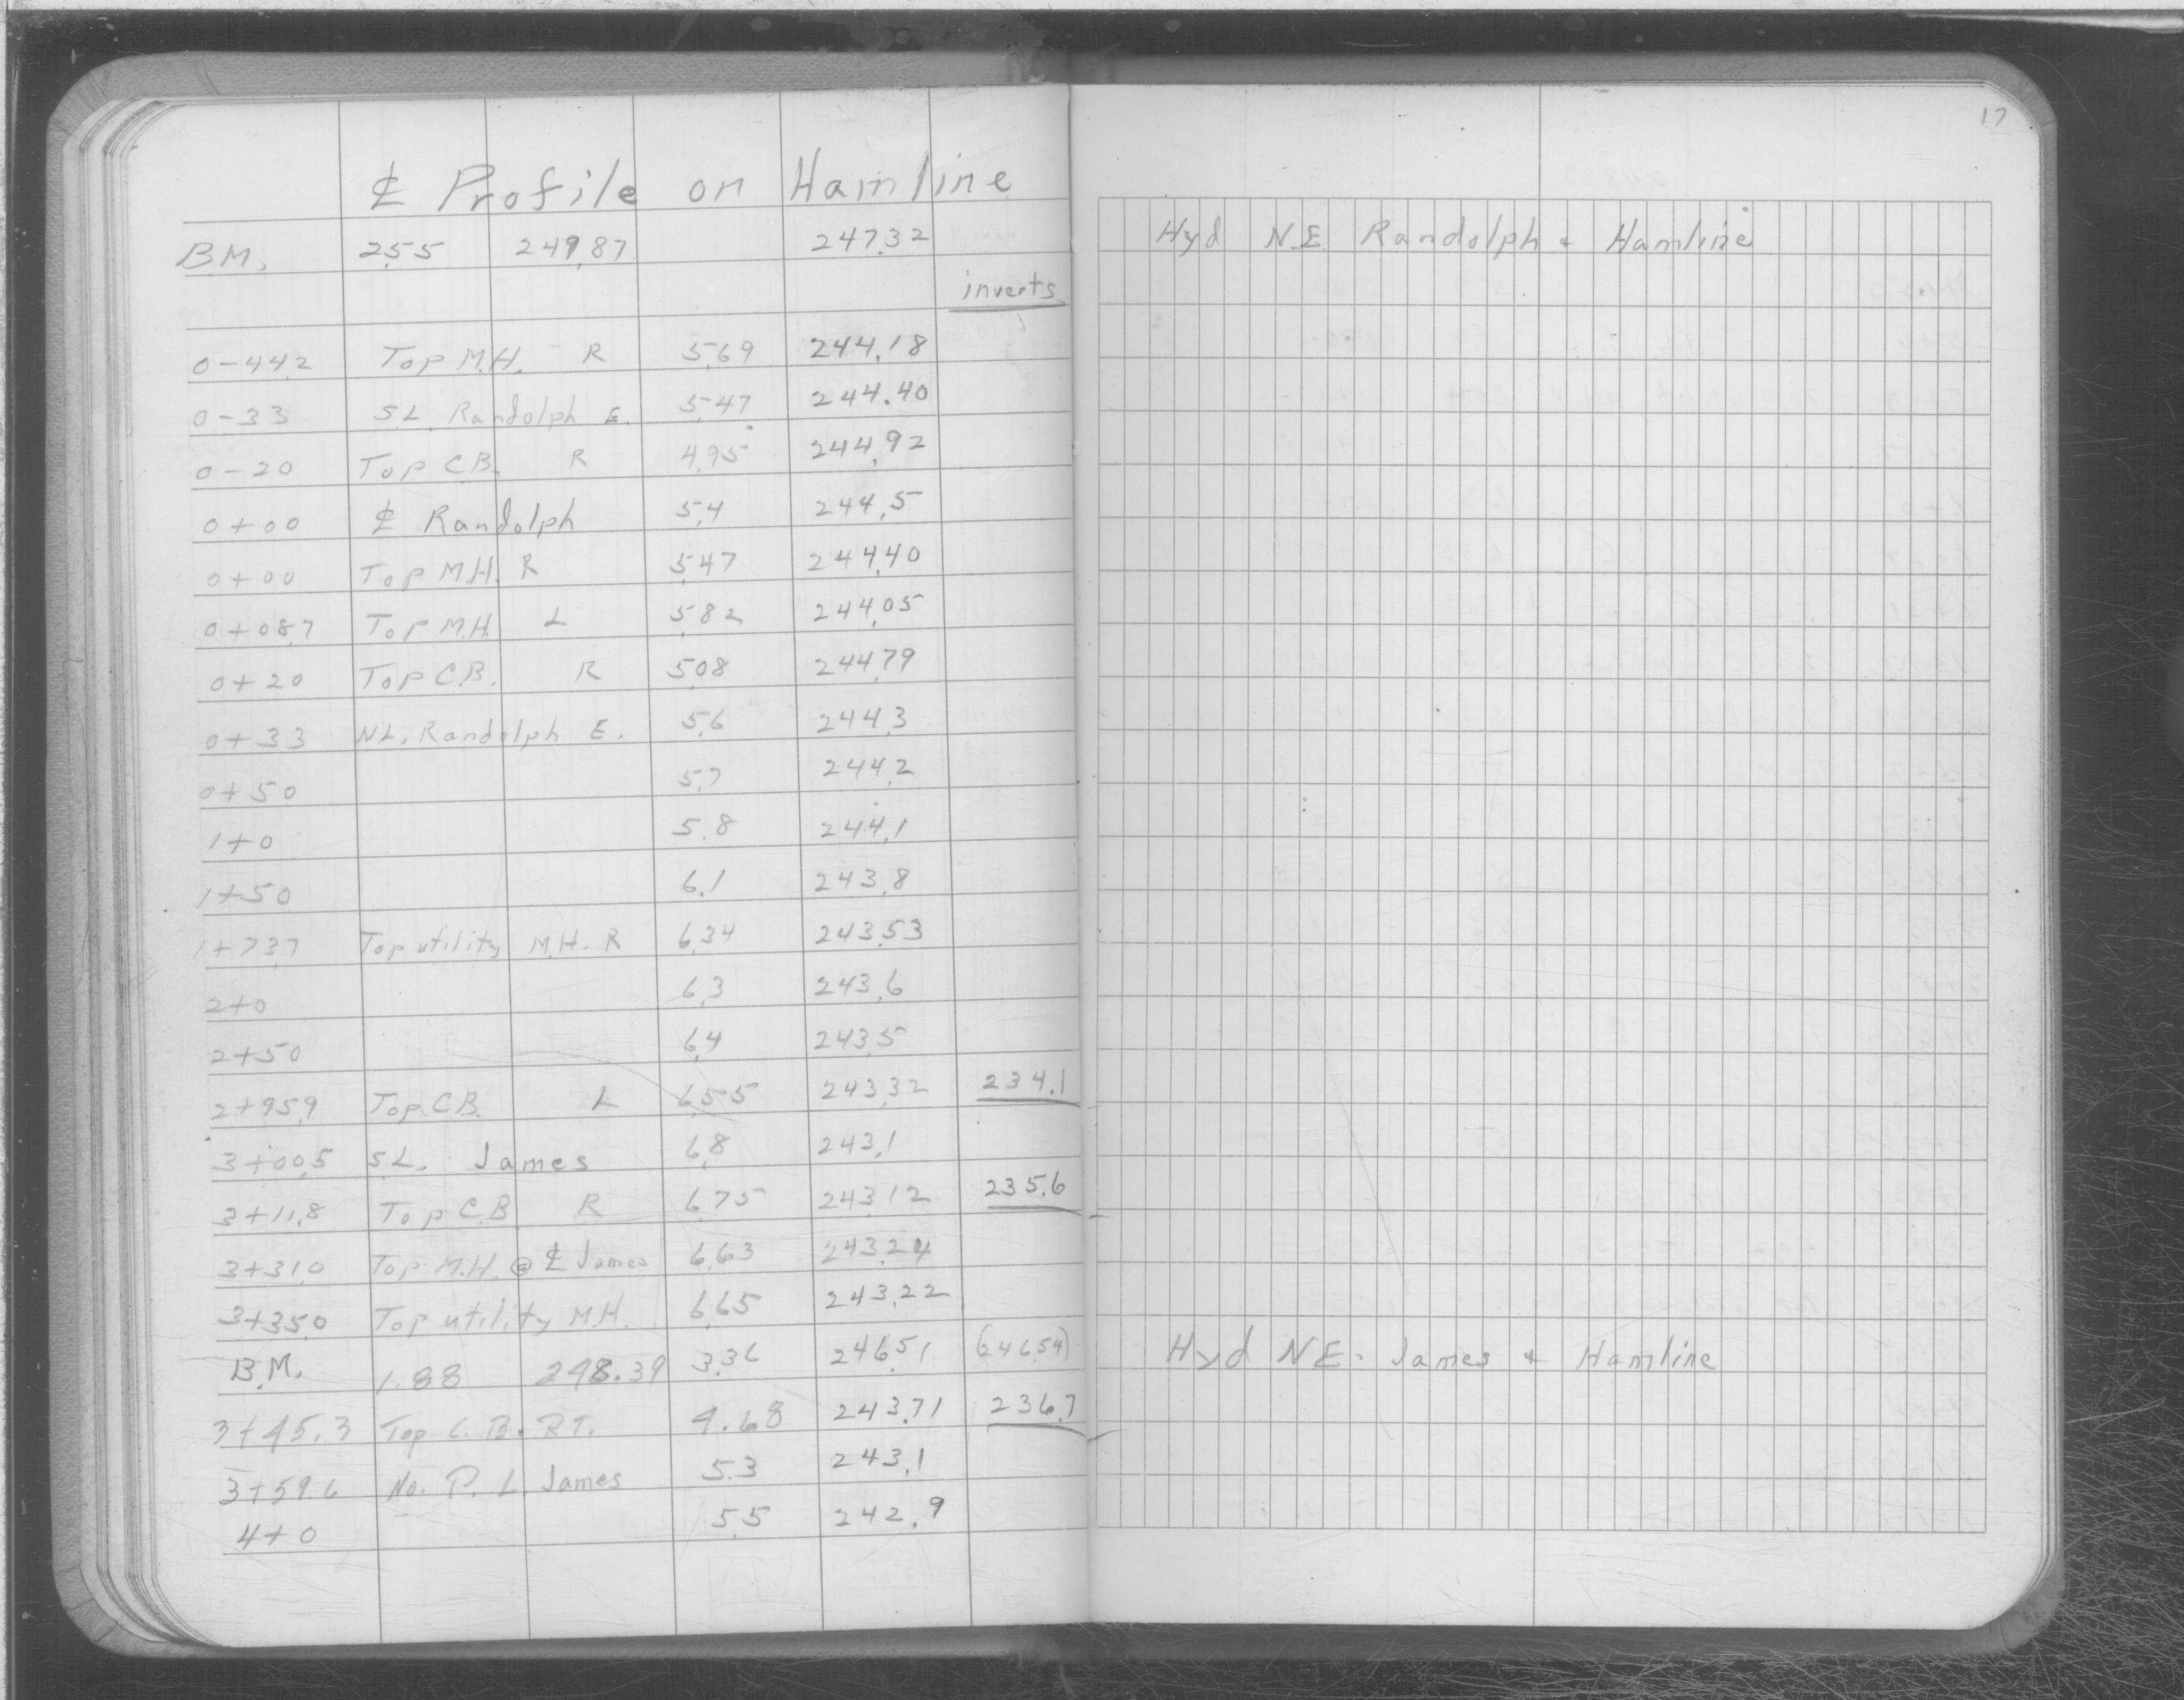 17
℄ Profile on Hamline
B.M. 2.55 249.87 247.32 Hyd N.E. Randolph + Hamline
inverts
0-44.2 Top M.H. R 5.69 244.18
0-33 S.L. Randolph E. 5.47 244.40
0-20 Top C.B. R 4.95 244.92
0+00 ℄ Randolph 5.4 244.5
0+00 Top M.H. R 5.47 244.40
0+08.7 Top M.H. L 5.82 244.05
0+20 Top C.B. R 5.08 244.79
0+33 N.L. Randolph E. 5.6 244.3
0+50 5.7 244.2
1+0 5.8 244.1
1+50 6.1 243.8
1+73.7 Top utility M.H. R 6.34 243.53
2+0 6.3 243.6
2+50 6.4 243.5
2+95.9 Top C.B. L 6.55 243.32 234.1
3+00.5 S.L. James 6.8 243.1
3+11.8 Top C.B. R 6.75 243.12 235.6
3+31.0 Top M.H. @ ℄ James 6.63 243.24
3+35.0 Top utility M.H. 6.65 243.22
B.M. 1.88 248.39 3.36 246.51 (246.54) Hyd N.E. James + Hamline
3+45.3 Top C.B. RT. 4.68 243.71 236.7
3+59.6 No. P.L. James 5.3 243.1
4+0 5.5 242.9